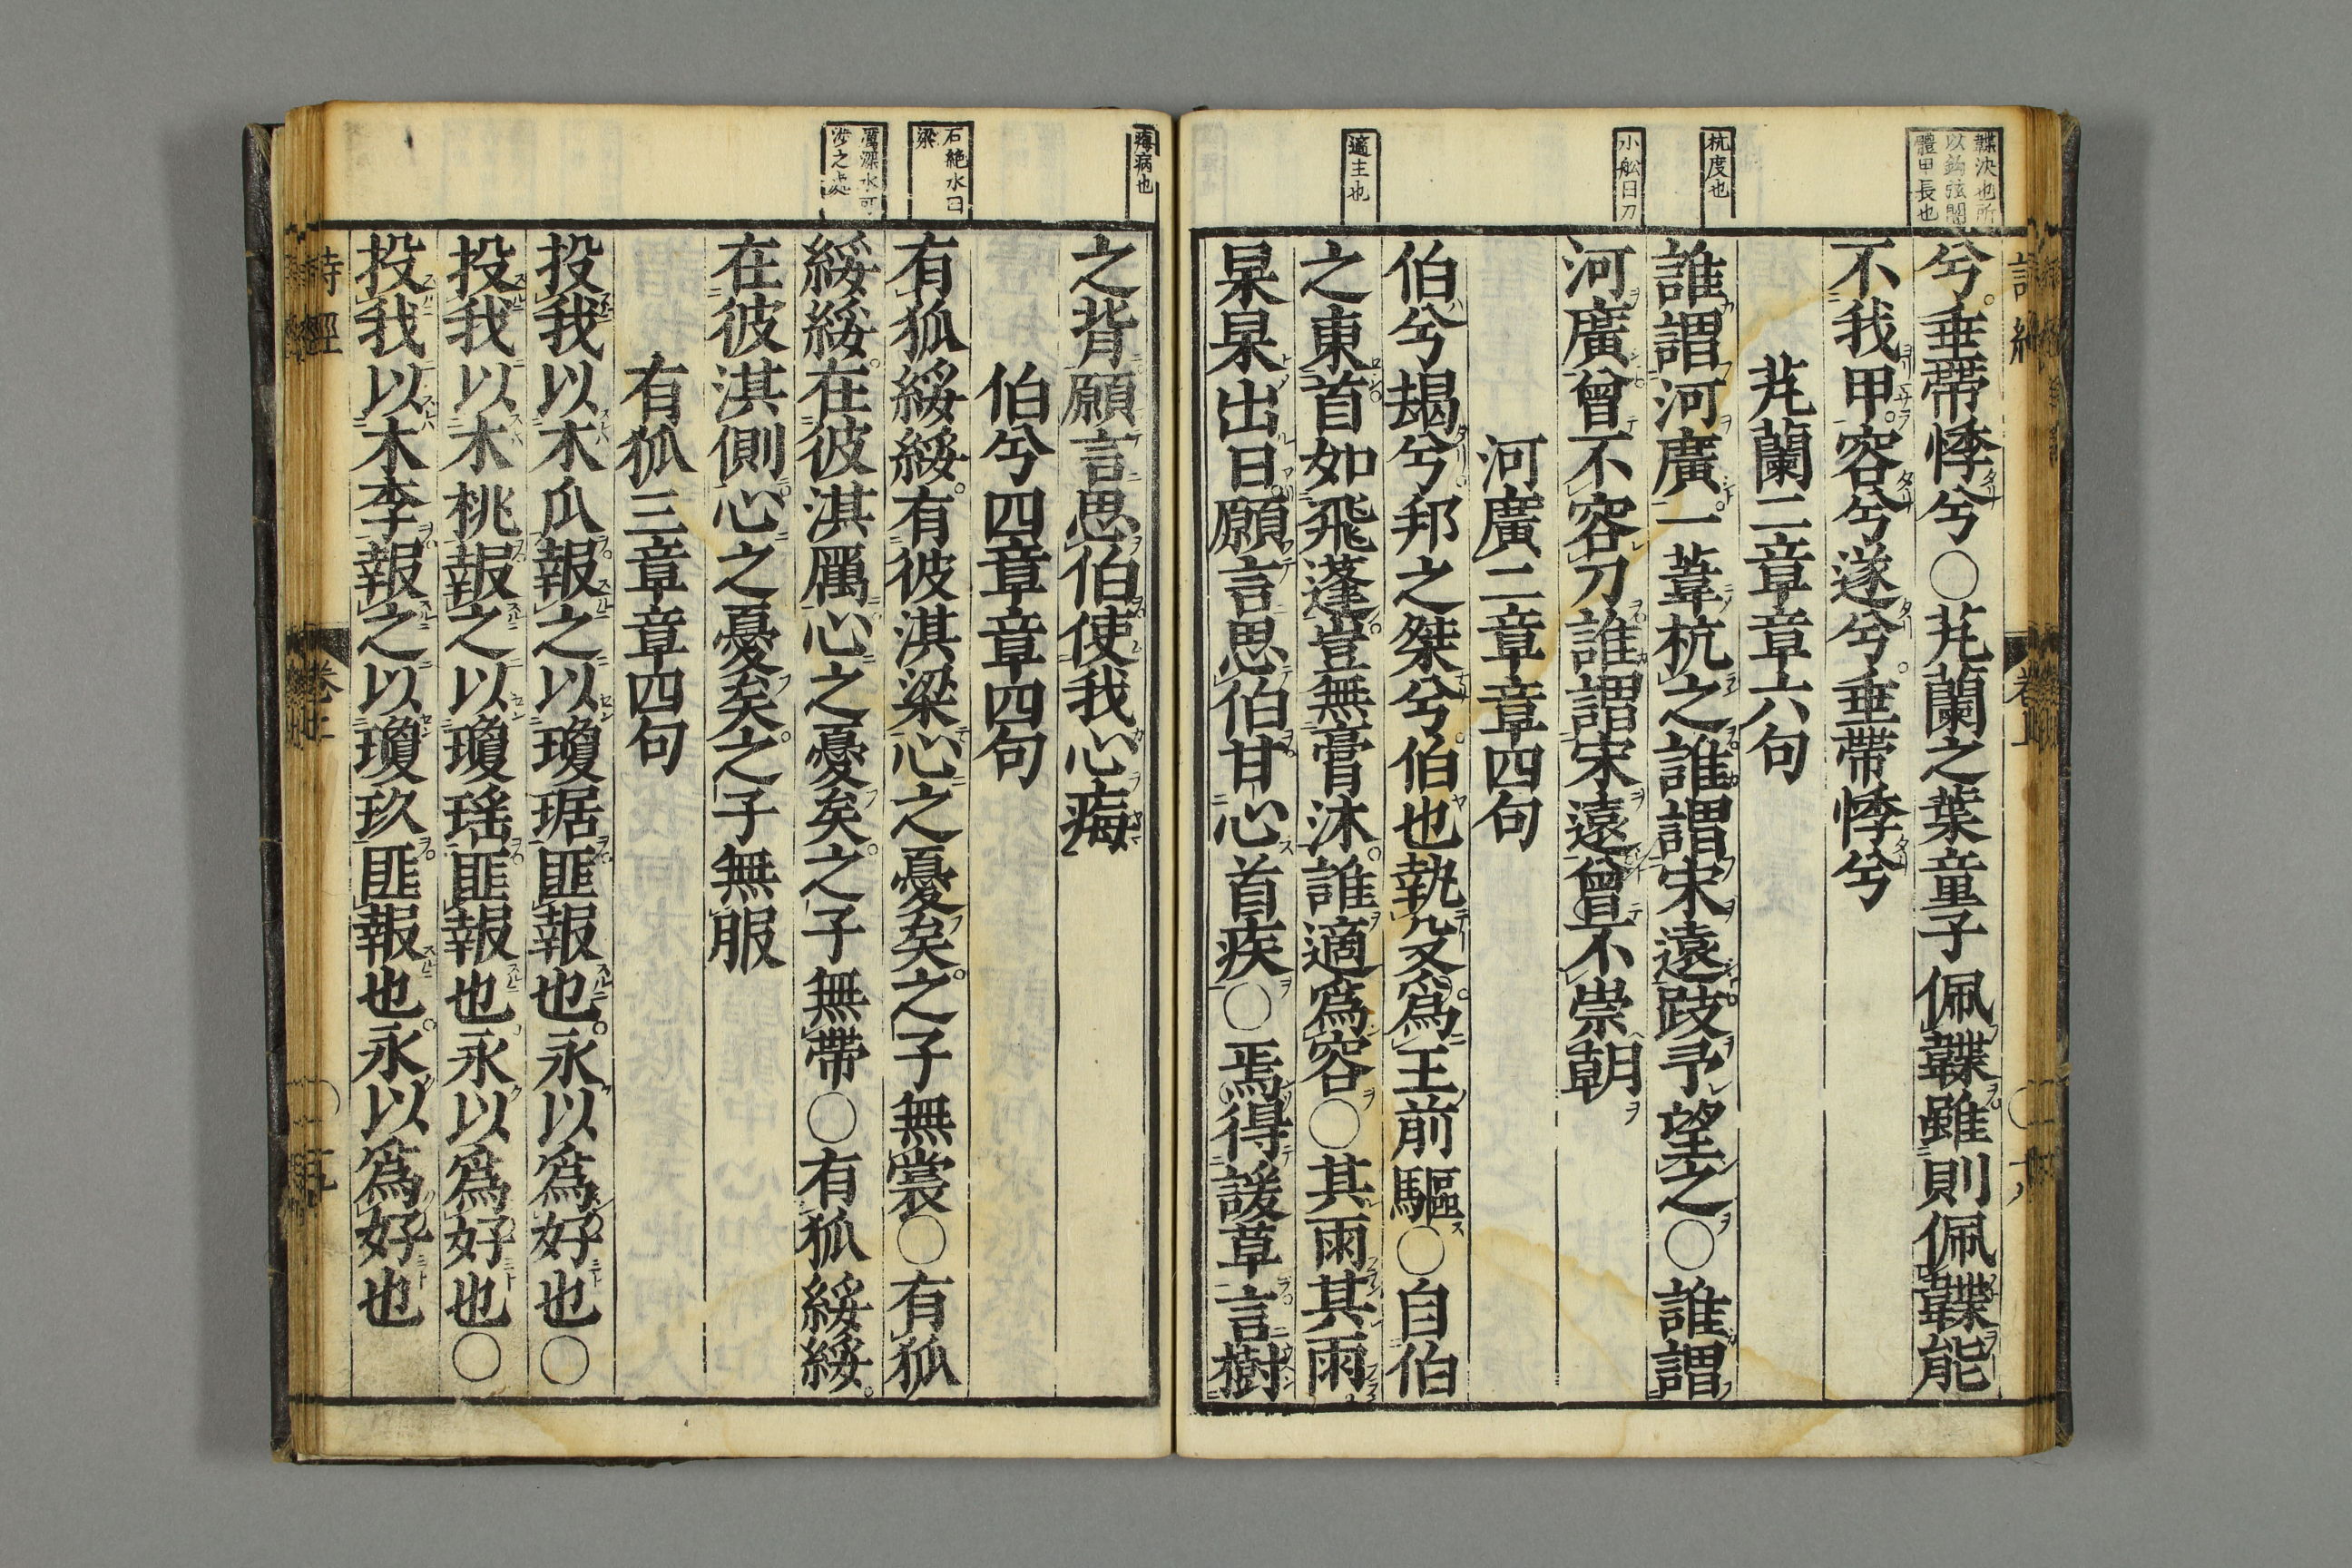 韘決也所
以鉤弦闓
體甲長也
杭度也
小舩曰刀
適主也
兮垂帶悸兮○芄蘭之葉童子佩韘雖則佩韘能
不我甲容兮遂兮垂帶悸兮
芄蘭二章章六句
誰謂河廣一葦杭之誰謂宋遠跂予望之○誰謂
河廣曾不容刀誰謂宋遠曾不崇朝
河廣二章章四句
伯兮朅兮邦之桀兮伯也執殳爲王前驅○自伯
之東首如飛蓬豈無膏沐誰適爲容○其雨其雨
杲杲出日願言思伯甘心首疾○焉得諼草言樹
痗病也
石絶水曰
梁
厲深水可
涉之處
之背願言思伯使我心痗
伯兮四章章四句
有狐綏綏有彼淇梁心之憂矣之子無裳○有狐
綏綏在彼淇厲心之憂矣之子無帶○有狐綏綏
在彼淇側心之憂矣之子無服
有狐三章章四句
投我以木瓜報之以瓊琚匪報也永以爲好也○
投我以木桃報之以瓊瑤匪報也永以爲好也○
投我以木李報之以瓊玖匪報也永以爲好也
詩經